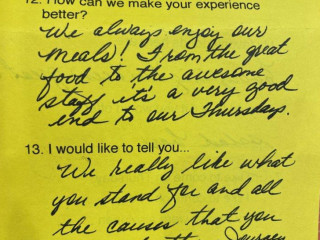 12. How can we make your experience
better?
We always enjoy our
meals! From the great
food to the awesome
staff, it's a very good
end to our Thursdays.
13. I would like to tell you...
We really like what
you stand for and all
the causes that you